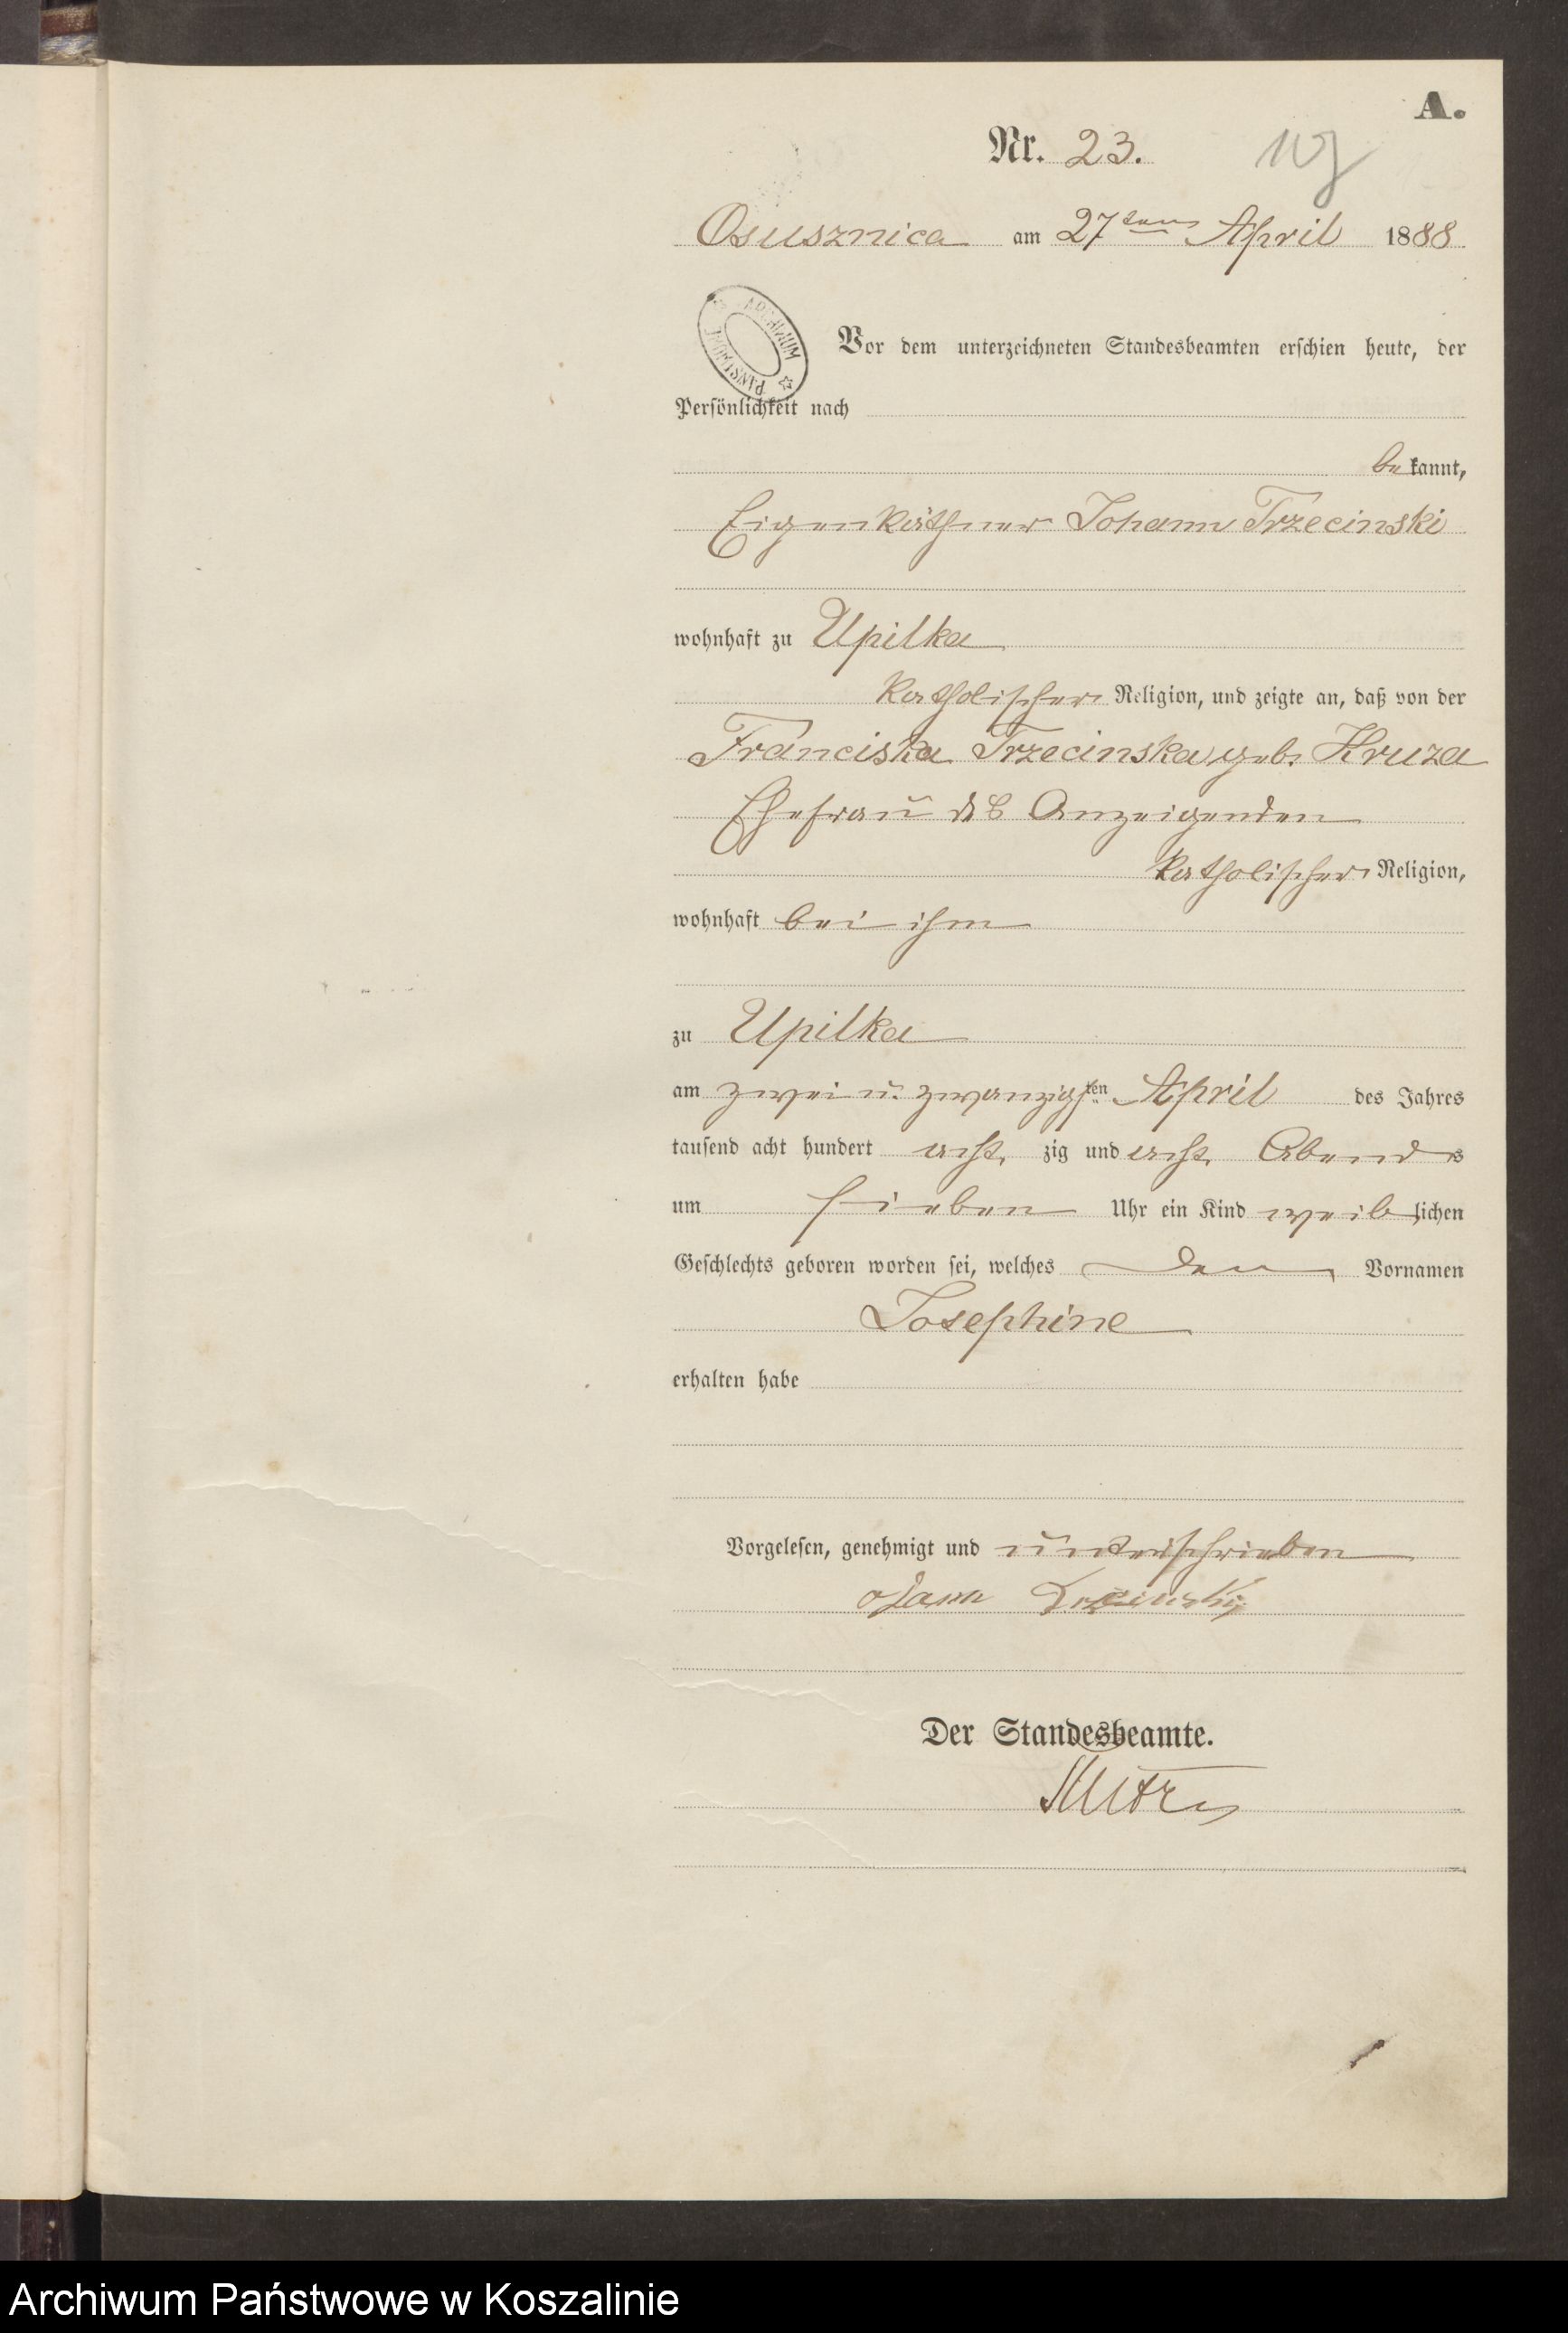 A.
Nr. 23.
Osusznica am 27ten April 1888
ARCHIWUM PAŃSTWOWE
Vor dem unterzeichneten Standesbeamten erschien heute, der
Persönlichkeit nach
bekannt,
Eigenkäthner Johann Trzecinski
wohnhaft zu Upilka
katholischer Religion, und zeigte an, daß von der
Franciska Trzecinska geb. Kruza
Ehefrau des Anzeigenden
katholischer Religion,
wohnhaft bei ihm
zu Upilka
am zwei u. zwanzigsten April des Jahres
tausend acht hundert acht zig und acht Abends
um sieben Uhr ein Kind weiblichen
Geschlechts geboren worden sei, welches den Vornamen
Josephine
erhalten habe
Vorgelesen, genehmigt und unterschrieben
Jann
Der Standesbeamte.
Archiwum Państwowe w Koszalinie